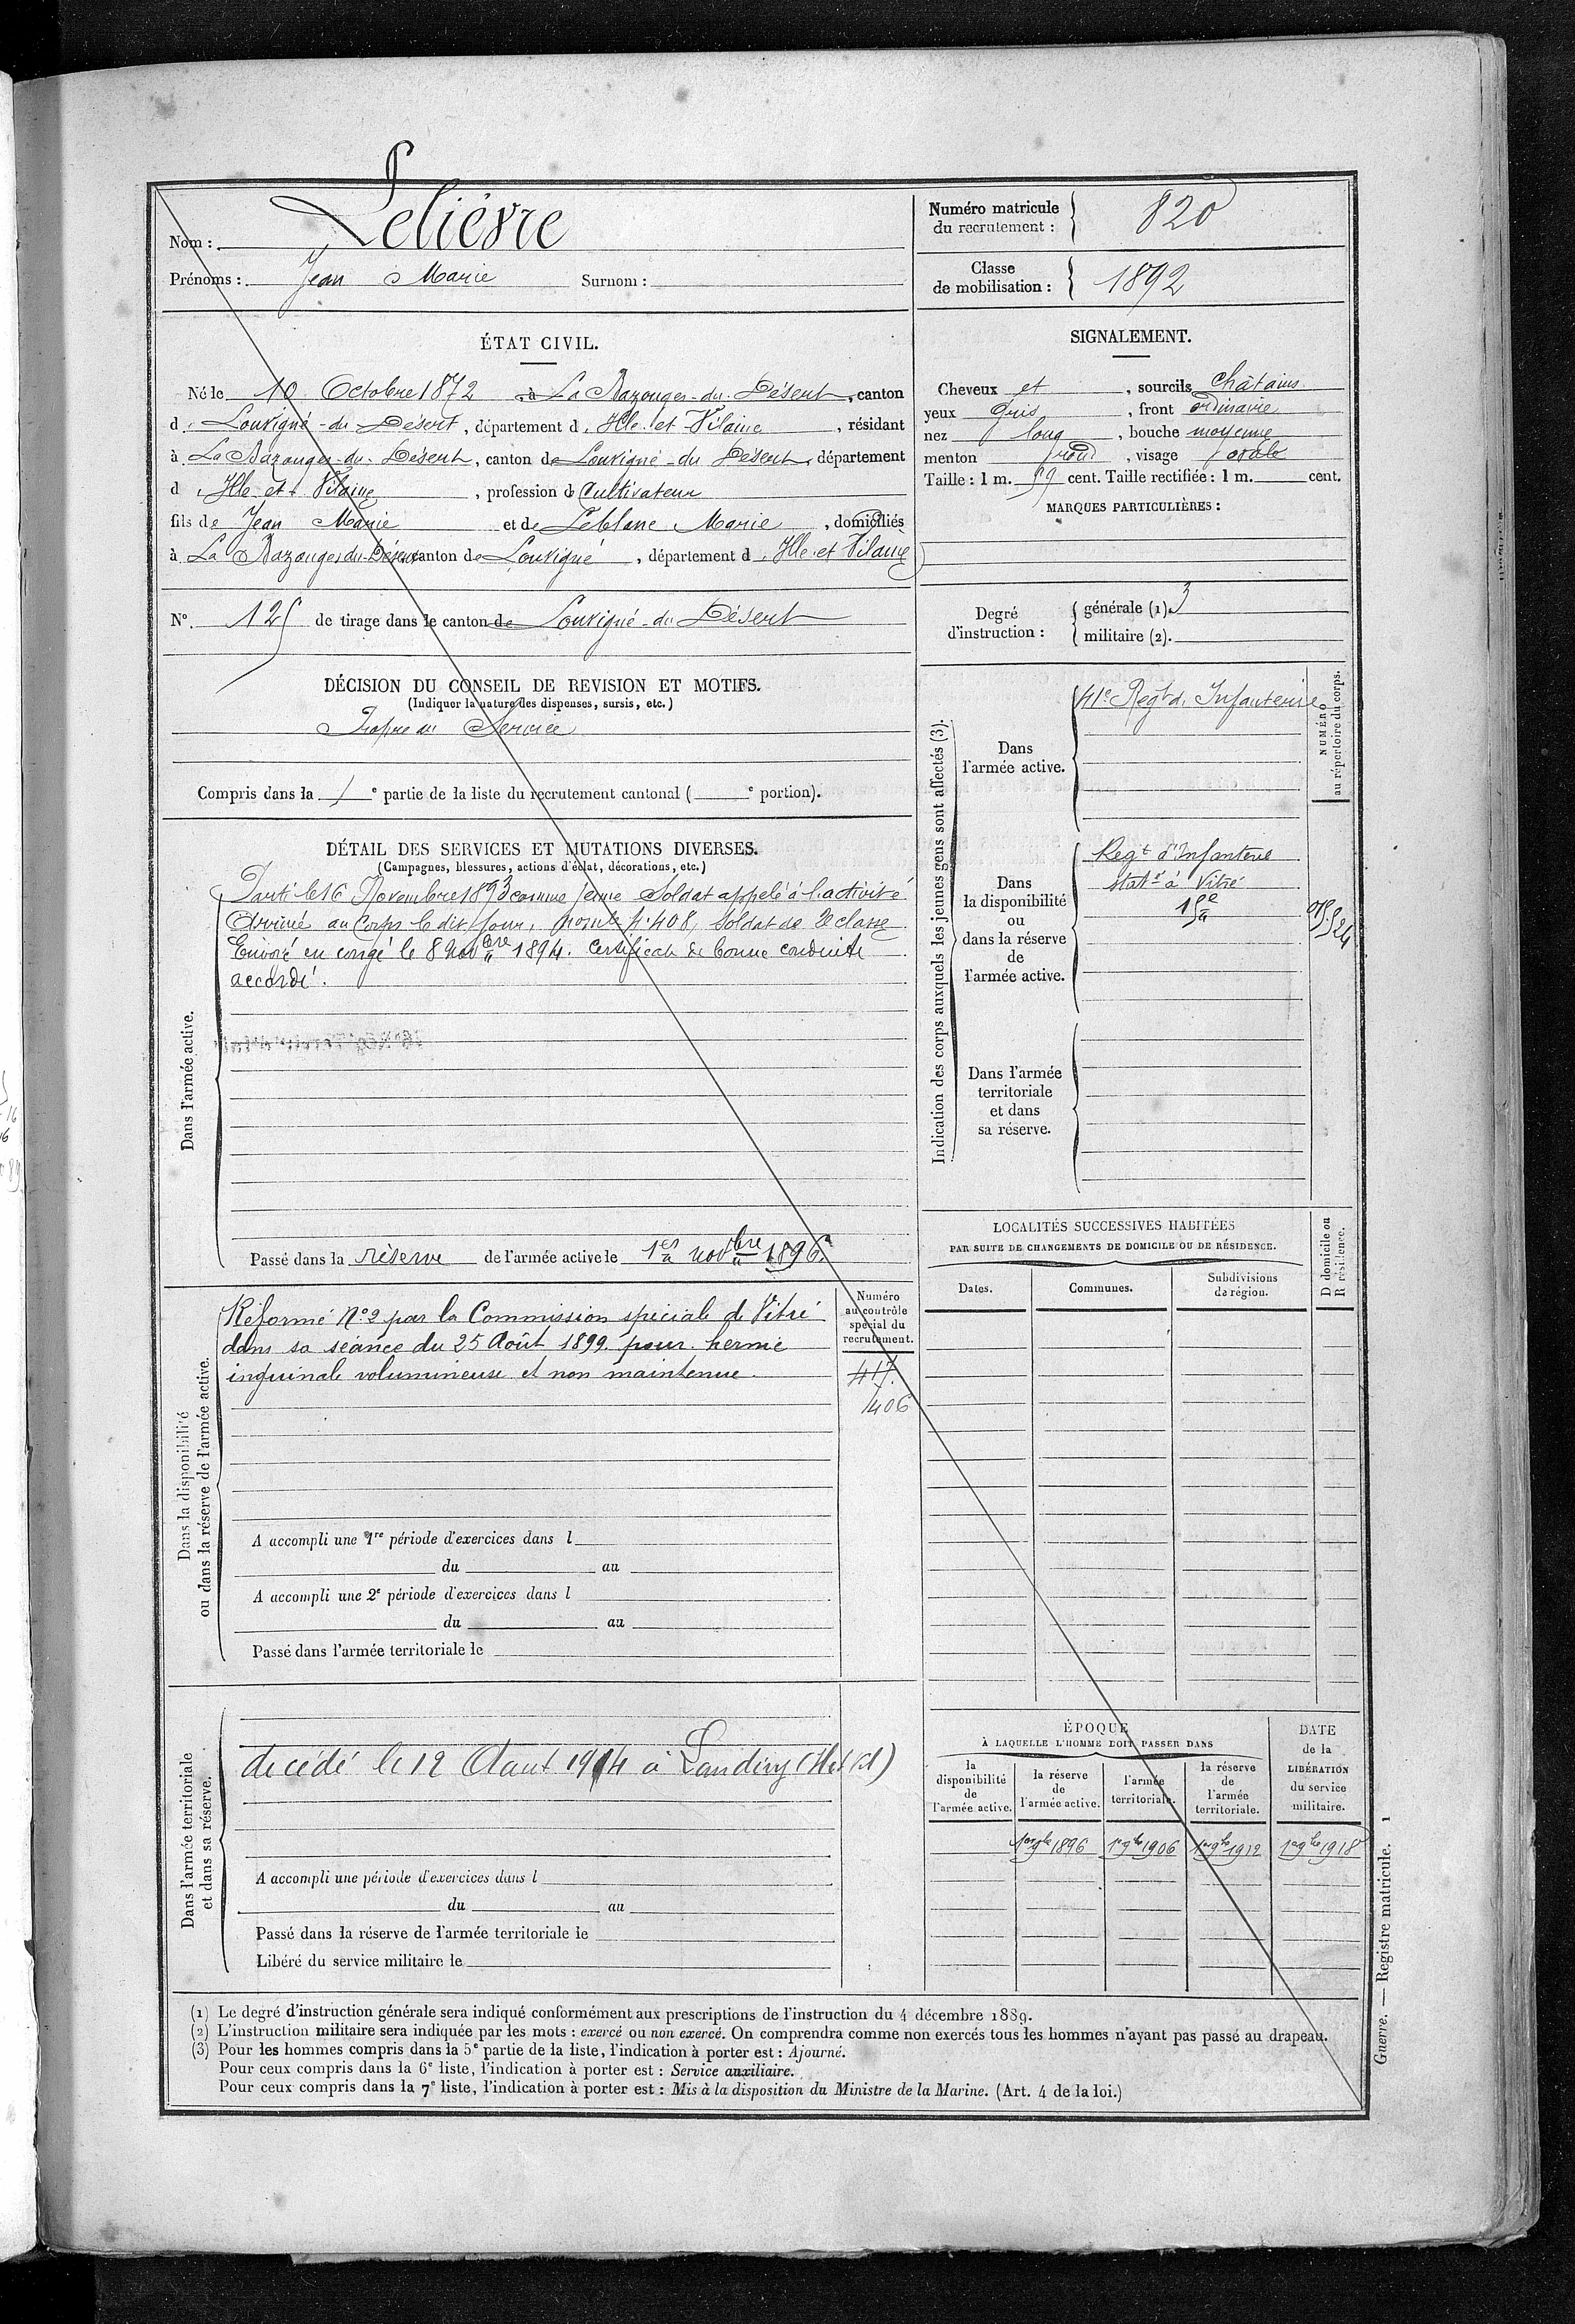 Nom : Lelièvre
Prénoms : Jean Marie Surnom :
Numéro matricule du recrutement : 820
Classe de mobilisation : 1892
ÉTAT CIVIL.
Né le 10 Octobre 1872, à La Bazouges-du-Désert, canton
d Louvigné-du-Désert, département d Ille-et-Vilaine, résidant
à La Bazouges-du-Désert, canton de Louvigné-du-Désert, département
d Ille et Vilaine, profession de Cultivateur
fils de Jean Marie et de Leblanc Marie, domiciliés
à La Bazouges-du-Désert canton de Louvigné, département d Ille et Vilaine
N°. 125 de tirage dans le canton de Louvigné-du-Désert
SIGNALEMENT.
Cheveux et, sourcils châtains
yeux gris, front ordinaire
nez long, bouche moyenne
menton rond, visage ovale
Taille : 1 m. 59 cent. Taille rectifiée : 1 m. cent.
MARQUES PARTICULIÈRES :
Degré d'instruction : générale (1). 3
militaire (2).
DÉCISION DU CONSEIL DE REVISION ET MOTIFS.
(Indiquer la nature des dispenses, sursis, etc.)
Propre au Service
Compris dans la 1e partie de la liste du recrutement cantonal ( e portion).
DÉTAIL DES SERVICES ET MUTATIONS DIVERSES.
(Campagnes, blessures, actions d'éclat, décorations, etc.)
Dans l'armée active.
Parti le 16 Novembre 1893 comme jeune Soldat appelé à l'activité
Arrivé au Corps le dit jour, 4.408, Soldat de 2e classe
Envoyé en congé le 8 novbre 1894. Certificat de bonne conduite
accordé.
Passé dans la réserve de l'armée active le 1er novbre 1896.
Indication des corps auxquels les jeunes gens sont affectés (3).
NUMÉRO au répertoire du corps.
Dans l'armée active.
41e Regt d'Infanterie
Dans la disponibilité ou dans la réserve de l'armée active.
Regt d'Infanterie
statné à Vitré
Dans l'armée territoriale et dans sa réserve.
LOCALITÉS SUCCESSIVES HABITÉES
PAR SUITE DE CHANGEMENTS DE DOMICILE OU DE RÉSIDENCE.
Dates. Communes. Subdivisions de région. D domicile ou R résidence.
Dans la disponibilité ou dans la réserve de l'armée active.
Numéro au contrôle spécial du recrutement.
Réformé No 2 par la Commission spéciale de Vitré
dans sa séance du 25 Août 1899. pour hernie
inguinale volumineuse et non maintenue.
406
A accompli une 1re période d'exercices dans l
du au
A accompli une 2e période d'exercices dans l
du au
Passé dans l'armée territoriale le
Dans l'armée territoriale et dans sa réserve.
décédé le 12 Aout 1914 à Landivy (
A accompli une période d'exercices dans l
du au
Passé dans la réserve de l'armée territoriale le
Libéré du service militaire le
ÉPOQUE
À LAQUELLE L'HOMME DOIT PASSER DANS
la disponibilité de l'armée active. la réserve de l'armée active. l'armée territoriale. la réserve de l'armée territoriale.
DATE de la LIBÉRATION du service militaire.
1er 9bre 1896 1er 9bre 1906 1er 9bre 1912 1er 9bre 1918
(1) Le degré d'instruction générale sera indiqué conformément aux prescriptions de l'instruction du 4 décembre 1889.
(2) L'instruction militaire sera indiquée par les mots : exercé ou non exercé. On comprendra comme non exercés tous les hommes n'ayant pas passé au drapeau.
(3) Pour les hommes compris dans la 5e partie de la liste, l'indication à porter est : Ajourné.
Pour ceux compris dans la 6e liste, l'indication à porter est : Service auxiliaire.
Pour ceux compris dans la 7e liste, l'indication à porter est : Mis à la disposition du Ministre de la Marine. (Art. 4 de la loi.)
Guerre. — Registre matricule. 1